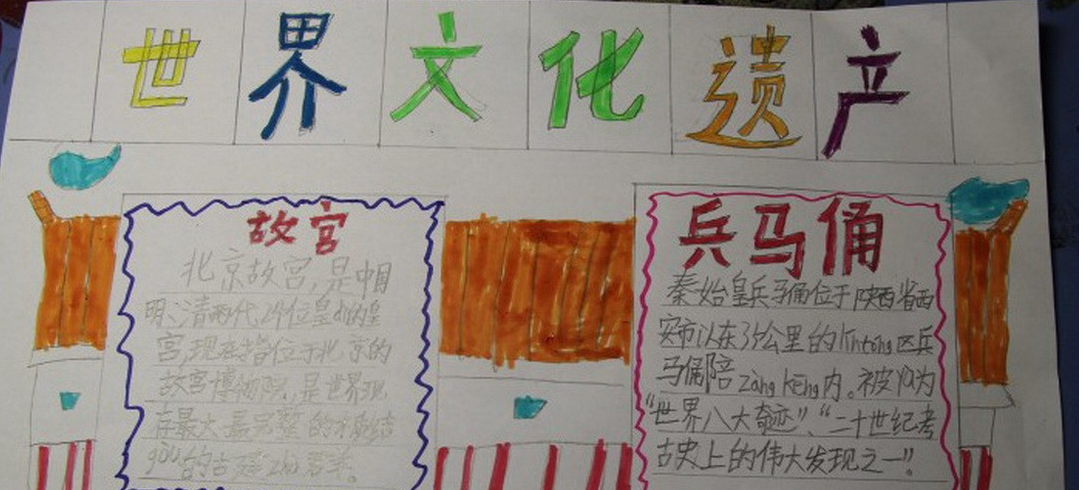 世界文化遗产
故宫
北京故宫,是中国
明、清两代24位皇帝的皇
宫,现在指位于北京的
故宫博物院,是世界现
存最大、最完整的木质结
gou的古建zhu群。
兵马俑
秦始皇兵马俑位于陕西省西
安市以东35公里的lintong区兵
马俑陪zang keng内。被为
"世界八大奇迹"、"二十世纪考
古史上的伟大发现之一"。